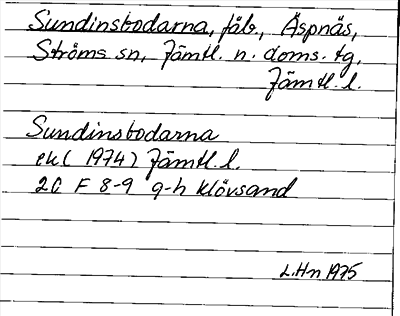 Sundinsbodarna, fäb., Äspnäs,
Ströms sn, Jämtl. n. doms. tg,
Jämtl. l.
Sundinsbodarna
ek( 1974) Jämtl. l.
20 F 8-9 g-h Klövsand
L.Hn 1975